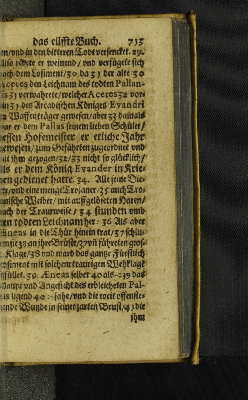 das eilffte Buch. 713
en/und in den bitteren Tode versencket. 29.
Also redete er weinend/ und verfügte sich
nach dem Losiment/30 da 31 der alte 30
Acetes den Leichnam des todten Pallan-
tis 33 verwahrete/welcher Acetes 32 vor-
hin 31 des Arcadischen Königes Evandri
Waffenträger gewesen/aber 33 damals
war er dem Pallas seinem lieben Schüler/
dessen Hofemeister er etliche Jahr
gewesen/zum Befährten zugeordnet und
mit ihm gezogen/32/33 nicht so glücklich/
als er dem König Evander in Krie-
gen gedienet hatte. 34. Alle seine Die-
ner/und eine menge Trojaner. 25 auch Tro-
janische Weiber/ mit auffgelöseten Haren/
nach der Traurweise/ 34 stunden umb
den todten Leichnam her. 36 Als aber
Æneas in die Thür hinein trat/37 schlu-
gen sie 38 an ihre Brüste/37 uñ führeten gros-
se Klage/38 und ward das gantz Fürstlich
Losiment mit solchem traurigen Wehklage
erfüllet. 39. Æneas selber 40 als-:39 das
Haupt und Angesicht des erbleicheten Pal-
lantis sahe/und die weit offenste-
hende Wunde in seiner zarten Brust/41 die
ihm